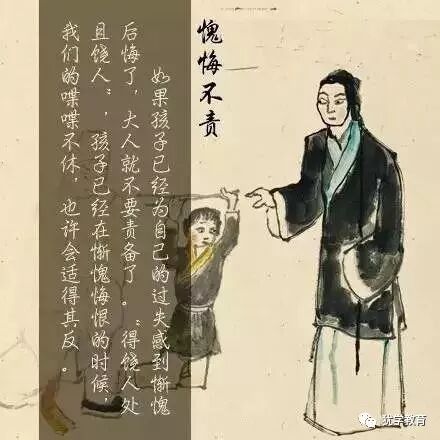 愧悔不责
如果孩子已经为自己的过失感到惭愧
后悔了，大人就不要责备了。“得饶人处
且饶人”，孩子已经在惭愧悔恨的时候，
我们的喋喋不休，也许会适得其反。
犹学教育